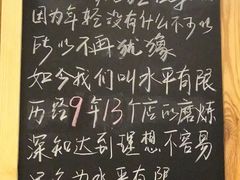 因为年轻没有什么不可以
所以不再犹豫
如今我们叫水平有限
历经9年13个店的磨炼
深知达到理想不容易
只会为水平有限